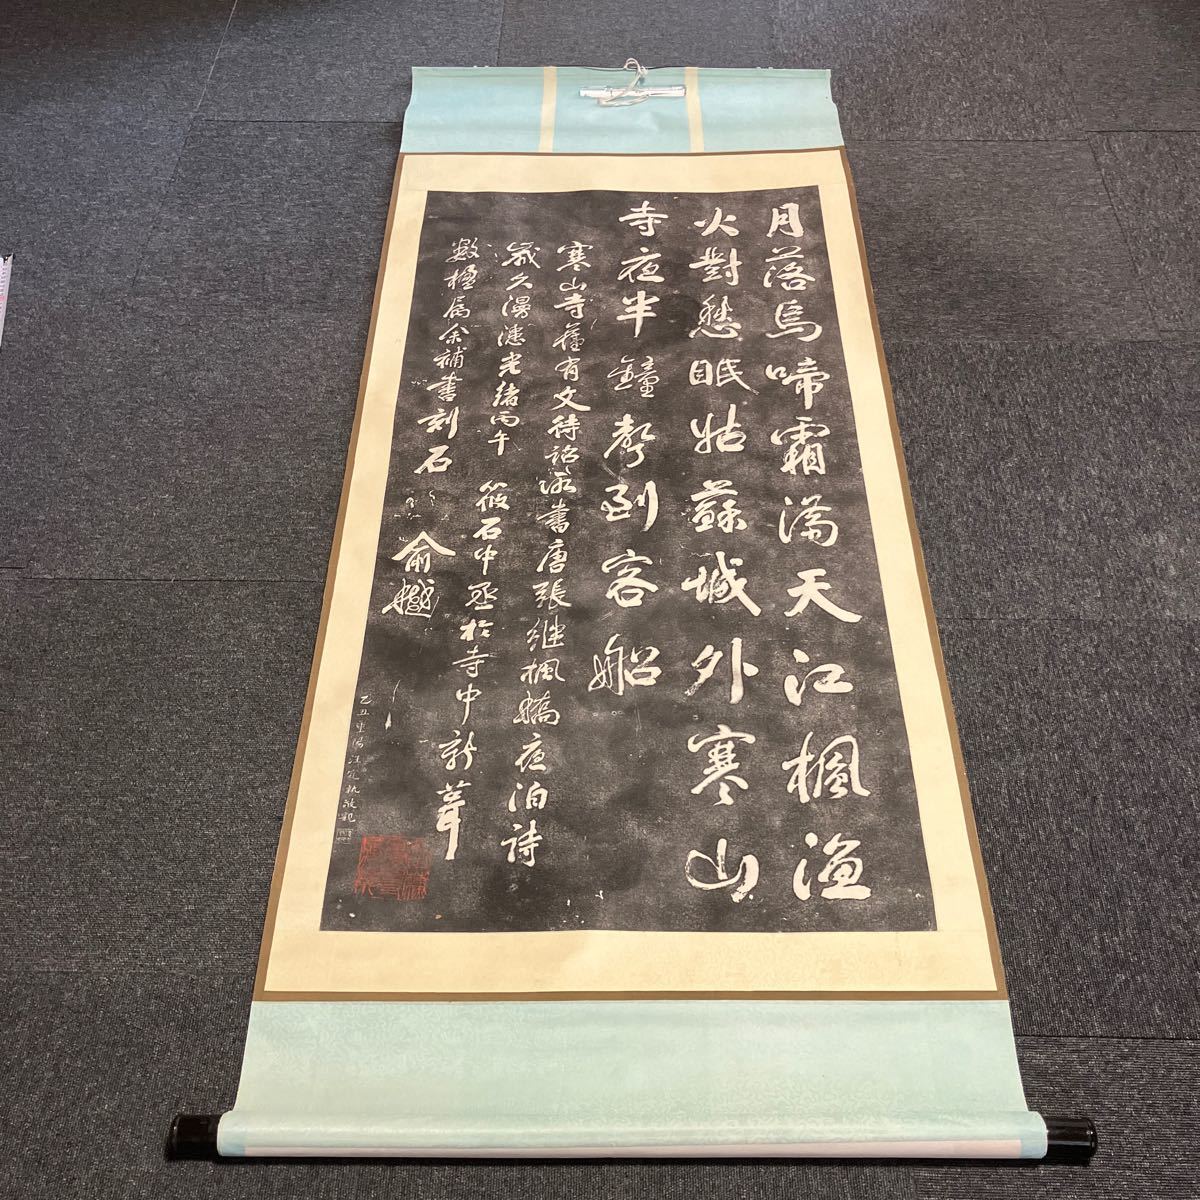 月落烏啼霜滿天江楓漁
火對愁眠姑蘇城外寒山
寺夜半鐘聲到客船
寒山寺舊有文待詔所書唐張繼楓橋夜泊詩
歲久漫漶光緒丙午筱石中丞於寺中新葺
數楹屬余補書刻石俞樾
乙丑